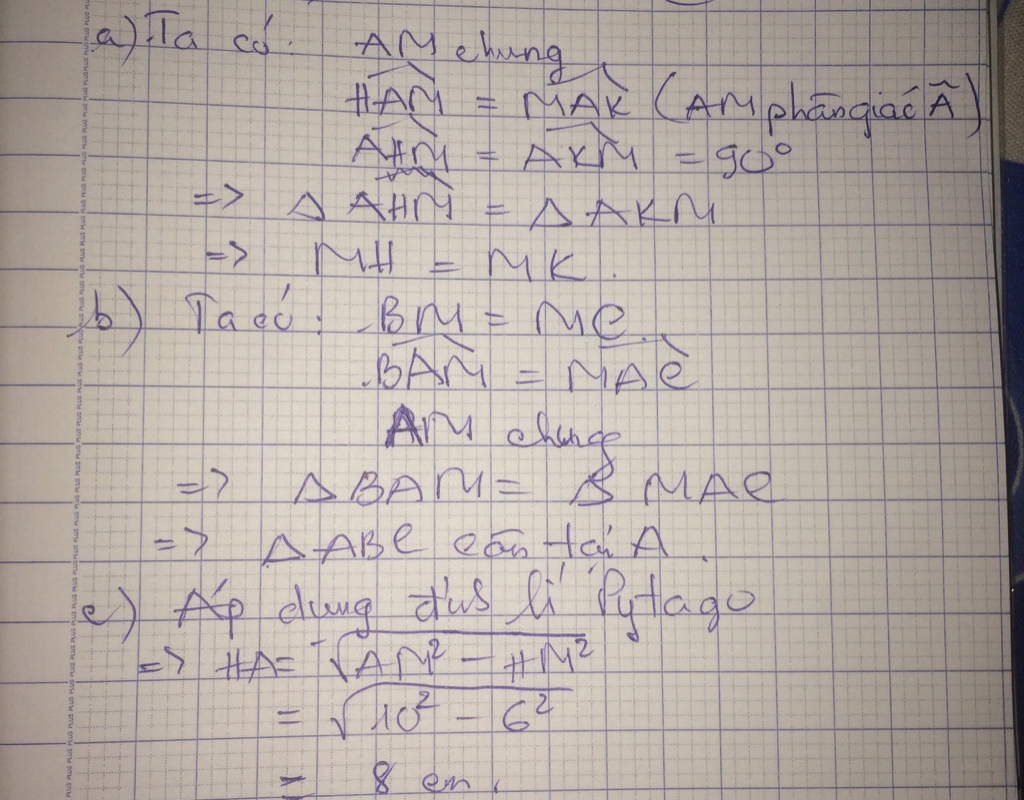 a) Ta có: AM chung
HAM^ = MAK^ (AM phân giác Â)
AHM^ = AKM^ = 90°
=> Δ AHM = Δ AKM
=> MH = MK.
b) Ta có: BM = MC.
BAM^ = MAC^
AM chung
=> Δ BAM = Δ MAC
=> Δ ABC cân tại A.
c) Áp dụng định lí Pytago
=> HA = √AM² - HM²
= √10² - 6²
= 8 cm.